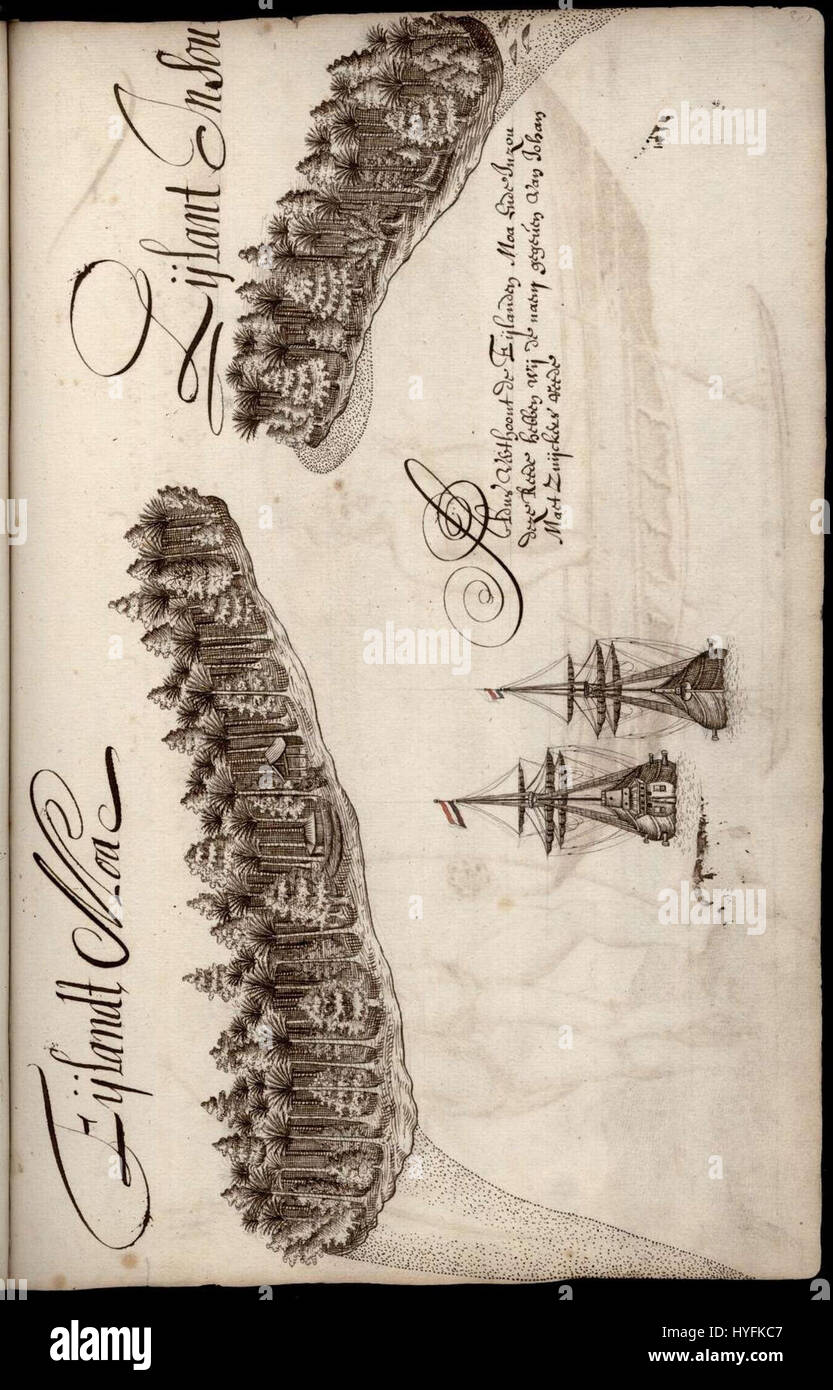 Eijlandt, Moa
Eijlant Insou
Aldus Verthoont de Eijlanden Moa Ende Inzou
deze Reede hebben wij de naem gegeven Van Johan
Maet Zuijckers reede
alamy
alamy
alamy
Image ID: HYFKC7
www.alamy.com